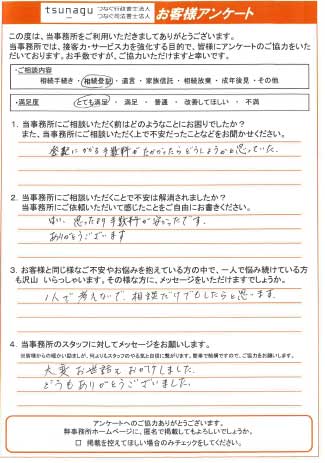 tsunagu つなぐ行政書士法人 つなぐ司法書士法人 お客様アンケート
この度は、当事務所をご利用いただきましてありがとうございます。
当事務所では、接客力・サービス力を強化する目的で、皆様にアンケートのご協力をいた
だいております。お手数ですが、ご協力いただけますと幸いです。
・ご相談内容
相続手続き・相続登記・遺言・家族信託・相続放棄・成年後見・その他
・満足度
とても満足・満足・普通・改善してほしい・不満
1. 当事務所にご相談いただく前はどのようなことにお困りでしたか？
また、当事務所にご相談いただく上で不安だったことなどをお聞かせください。
登記にかかる手数料がたかかったらどうしようかと思っていた。
2. 当事務所にご相談いただくことで不安は解消されましたか？
当事務所にご依頼いただいて感じたことをご自由にお書きください。
はい。思ったより手数料が安かったです。
ありがとうございます
3. お客様と同じ様なご不安やお悩みを抱えている方の中で、一人で悩み続けている方
も沢山いらっしゃいます。その様な方に、メッセージをいただけますでしょうか。
1人で考えないで、相談だけでもしたらと思います。
4. 当事務所のスタッフに対してメッセージをお願いします。
※皆様からの暖かい励ましが、何よりもスタッフのやる気と自信に繋がります。簡単で結構ですので、ご協力をお願いします。
大変お世話をおかけしました。
どうもありがとうございました。
アンケートへのご協力ありがとうございます。
弊事務所ホームページに、匿名で掲載してもよろしいでしょうか。
□ 掲載を控えてほしい場合のみチェックをしてください。